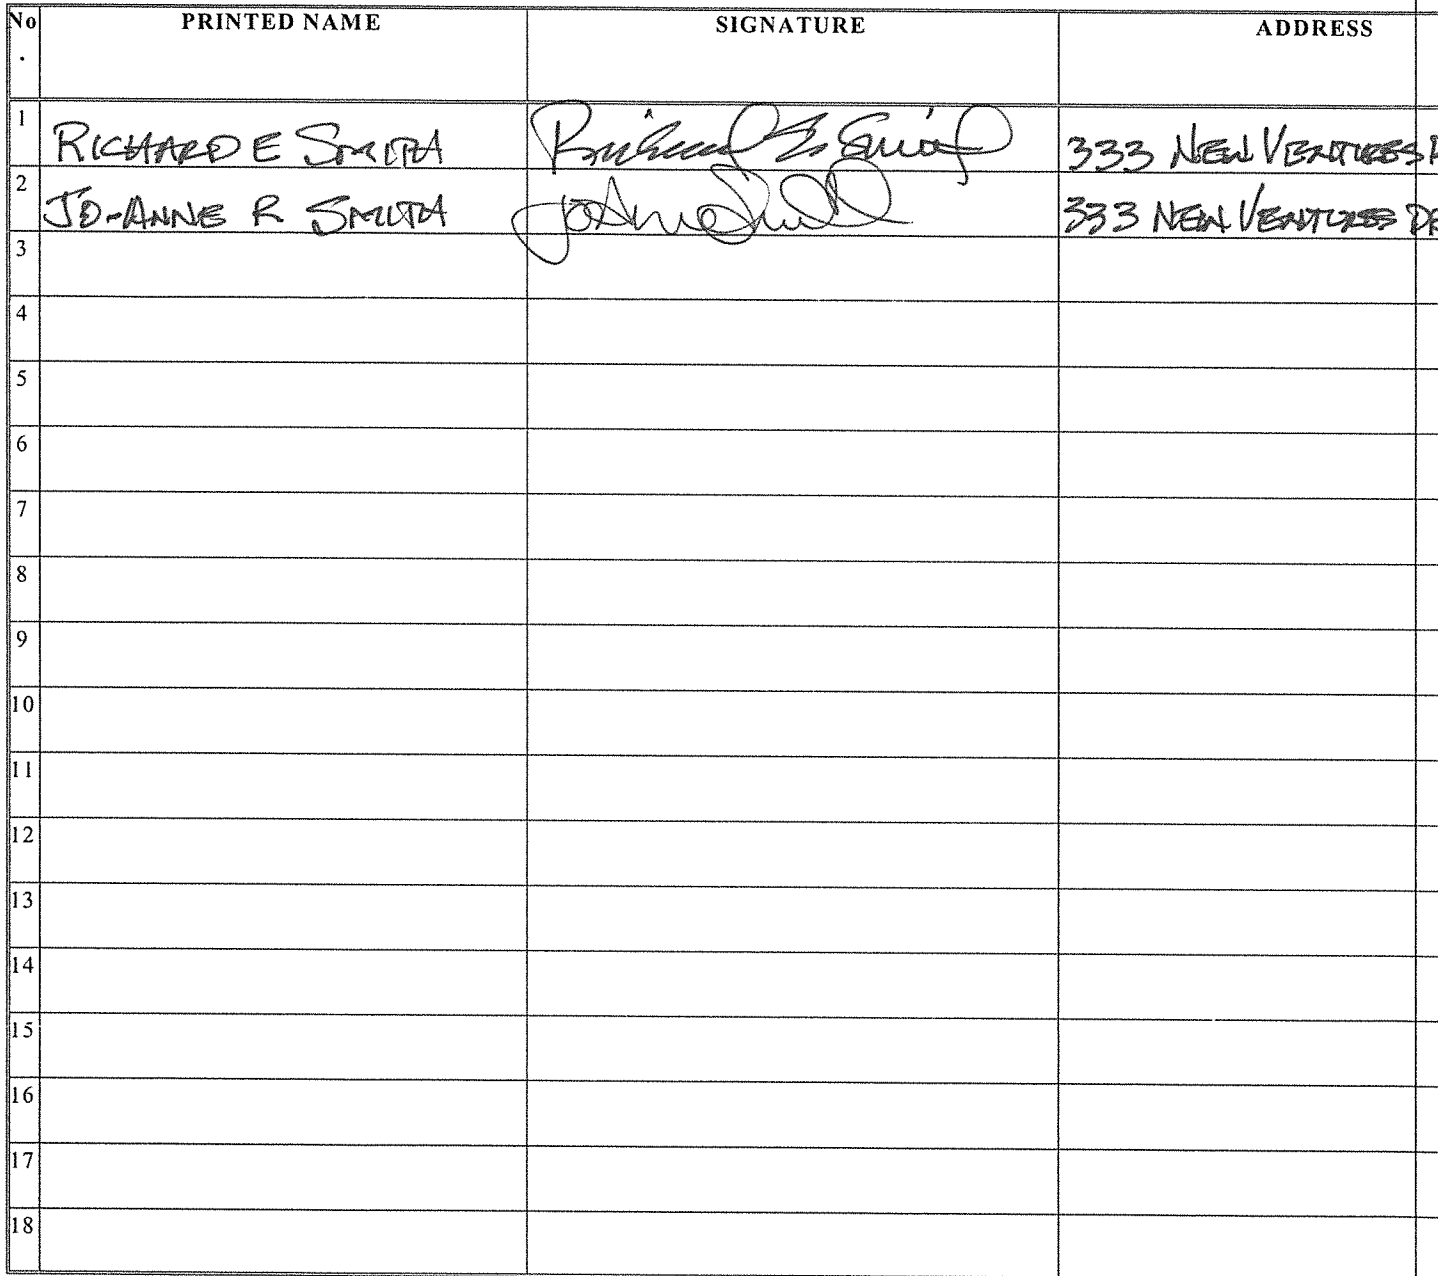 No. PRINTED NAME SIGNATURE ADDRESS
1 RICHARD E SMITH Richard E Smith 333 NEW VENTURES
2 JO-ANNE R SMITH JoAnne Smith 333 NEW VENTURES DR
3
4
5
6
7
8
9
10
11
12
13
14
15
16
17
18